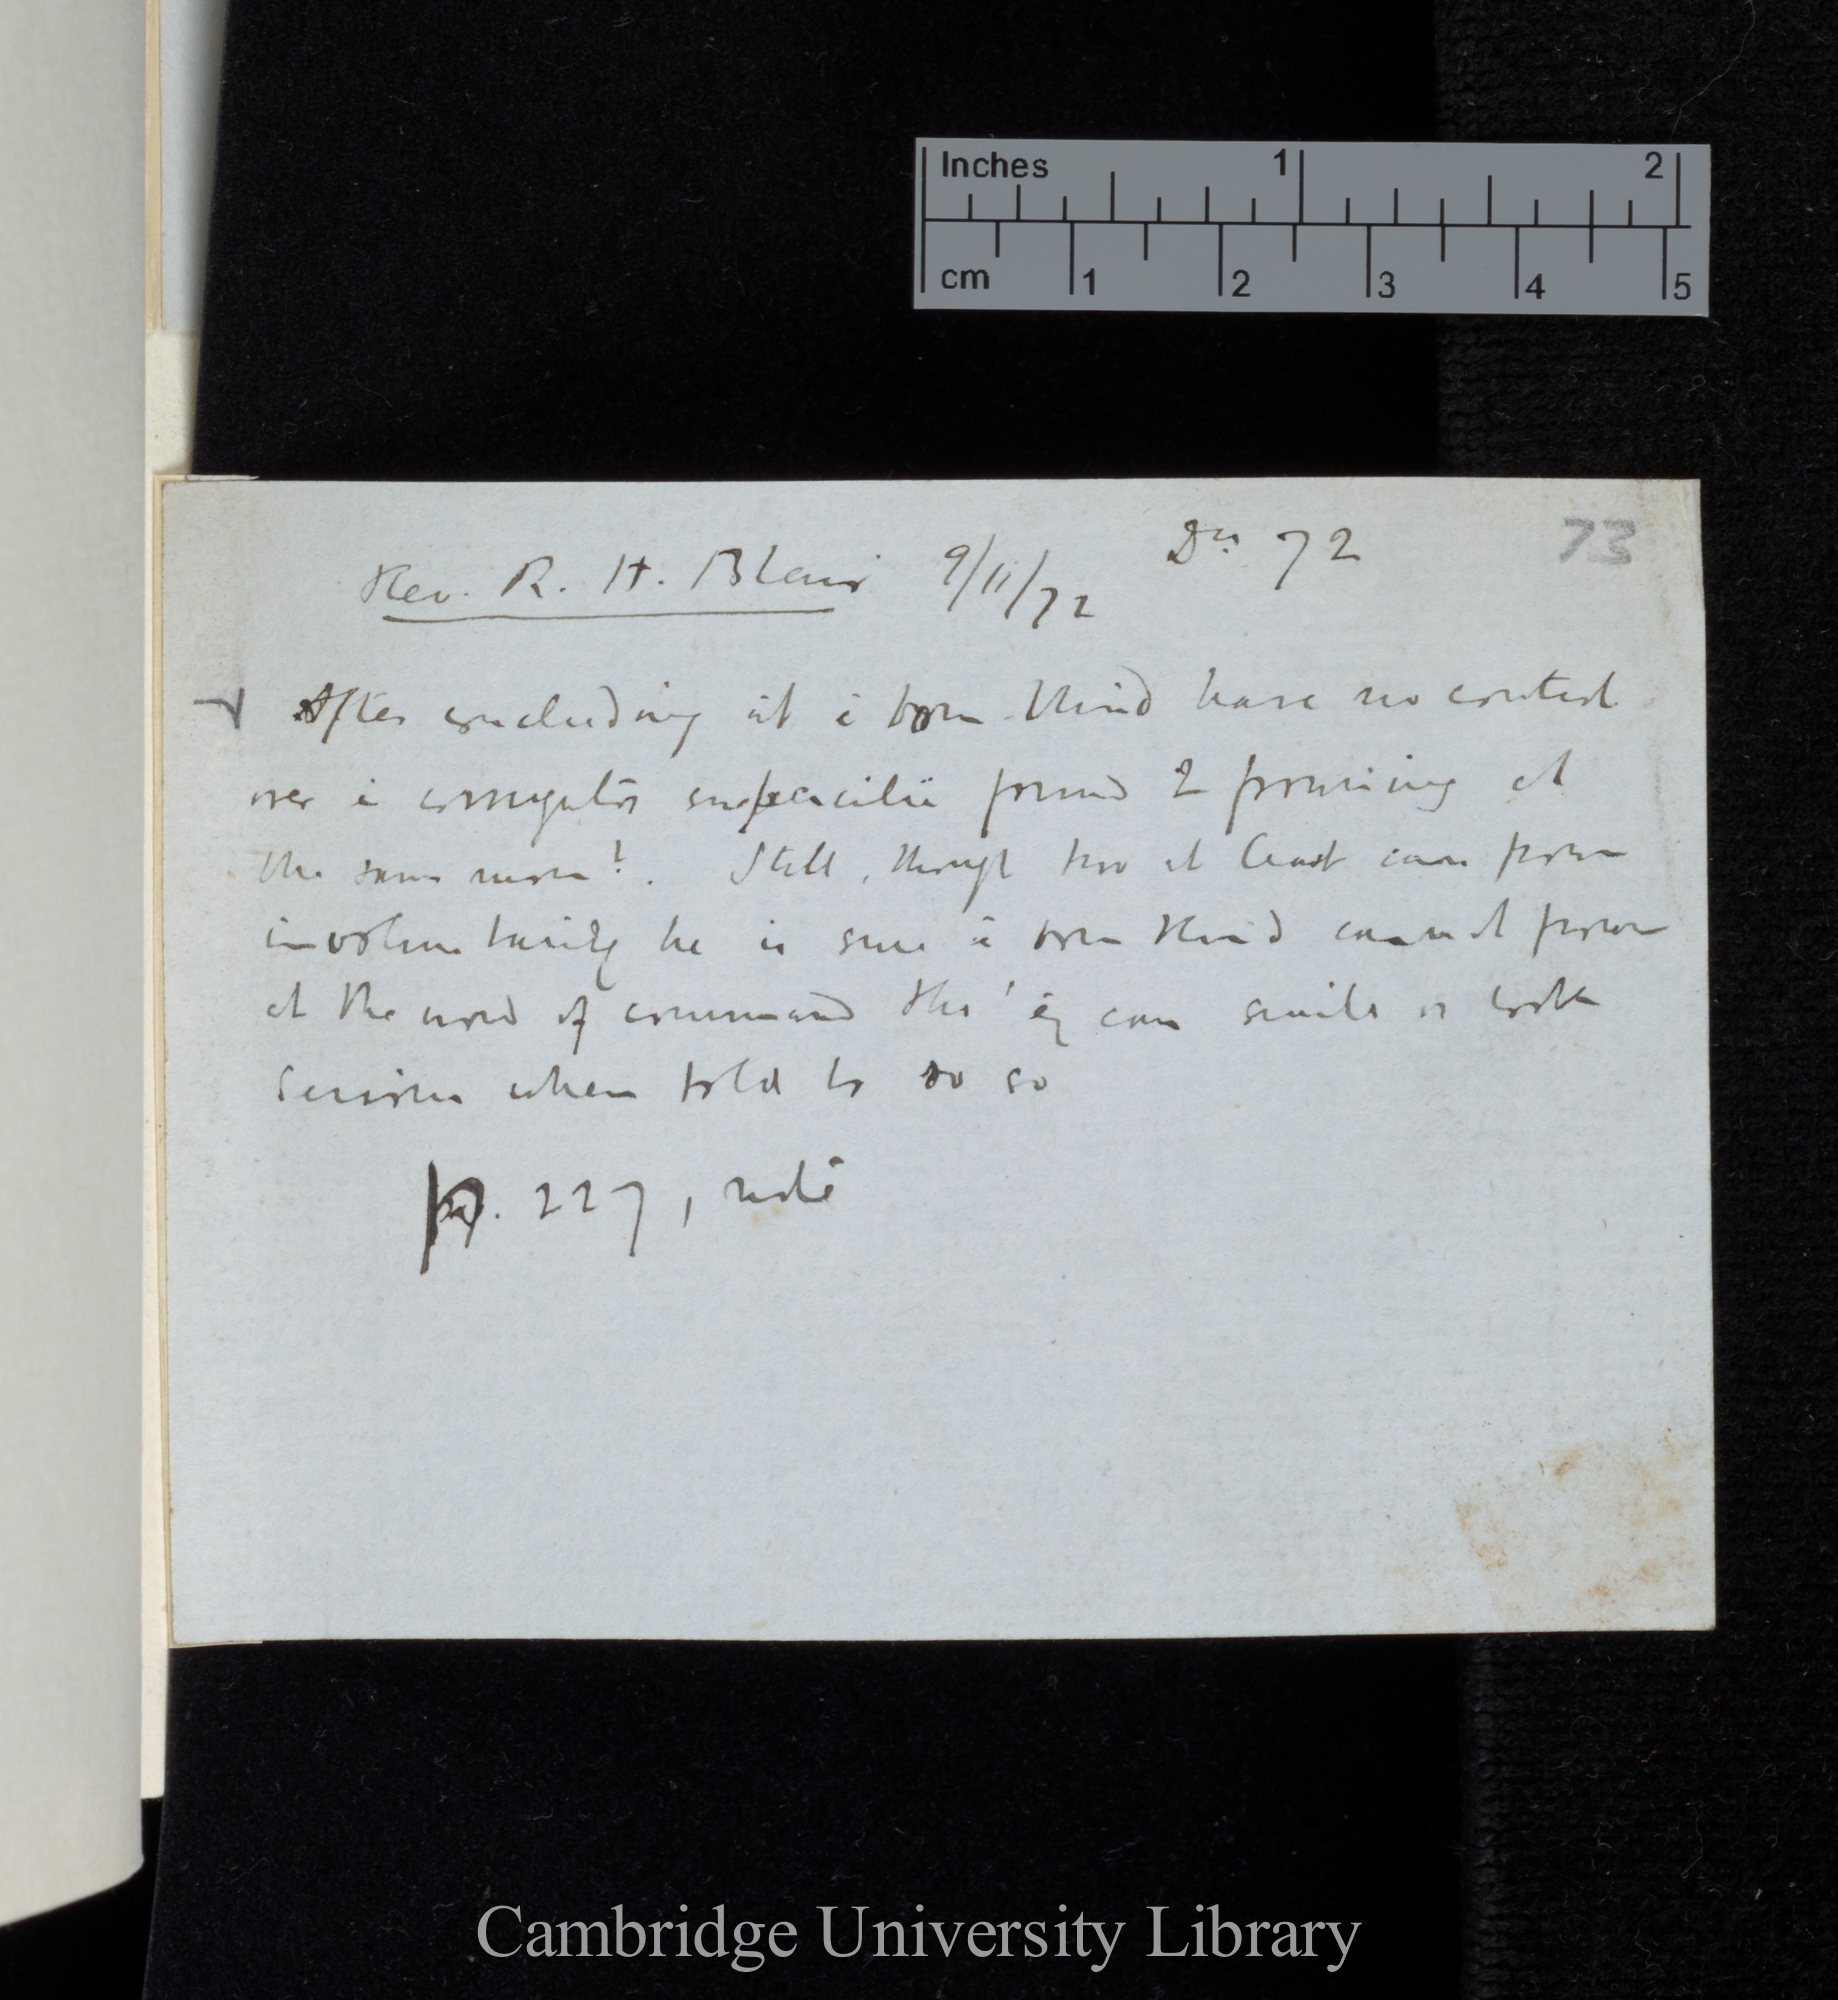 Inches 1 2
cm 1 2 3 4 5
73
Rev. R. H. Blair 9/11/72 Dr 72
After concluding it i born blind have no control
over i corrugator supercilii found 2 frowning at
the same mom!. Still, though two at least can frown
involuntarily he is sure i born blind cannot frown
at the word of command tho' iy can smile or look
serious when told to do so
p. 227, note
Cambridge University Library